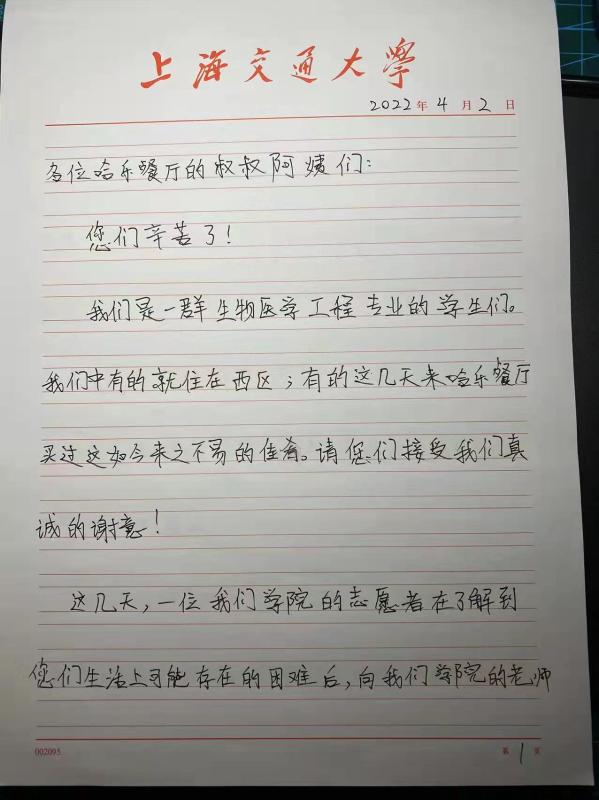 上海交通大學
2022年4月2日
各位哈乐餐厅的叔叔阿姨们：
您们辛苦了！
我们是一群生物医学工程专业的学生们。
我们中有的就住在西区；有的这几天来哈乐餐厅
买过这如今来之不易的佳肴。请您们接受我们真
诚的谢意！
这几天，一位我们学院的志愿者在了解到
您们生活上可能存在的困难后，向我们学院的老师
002095
第1页